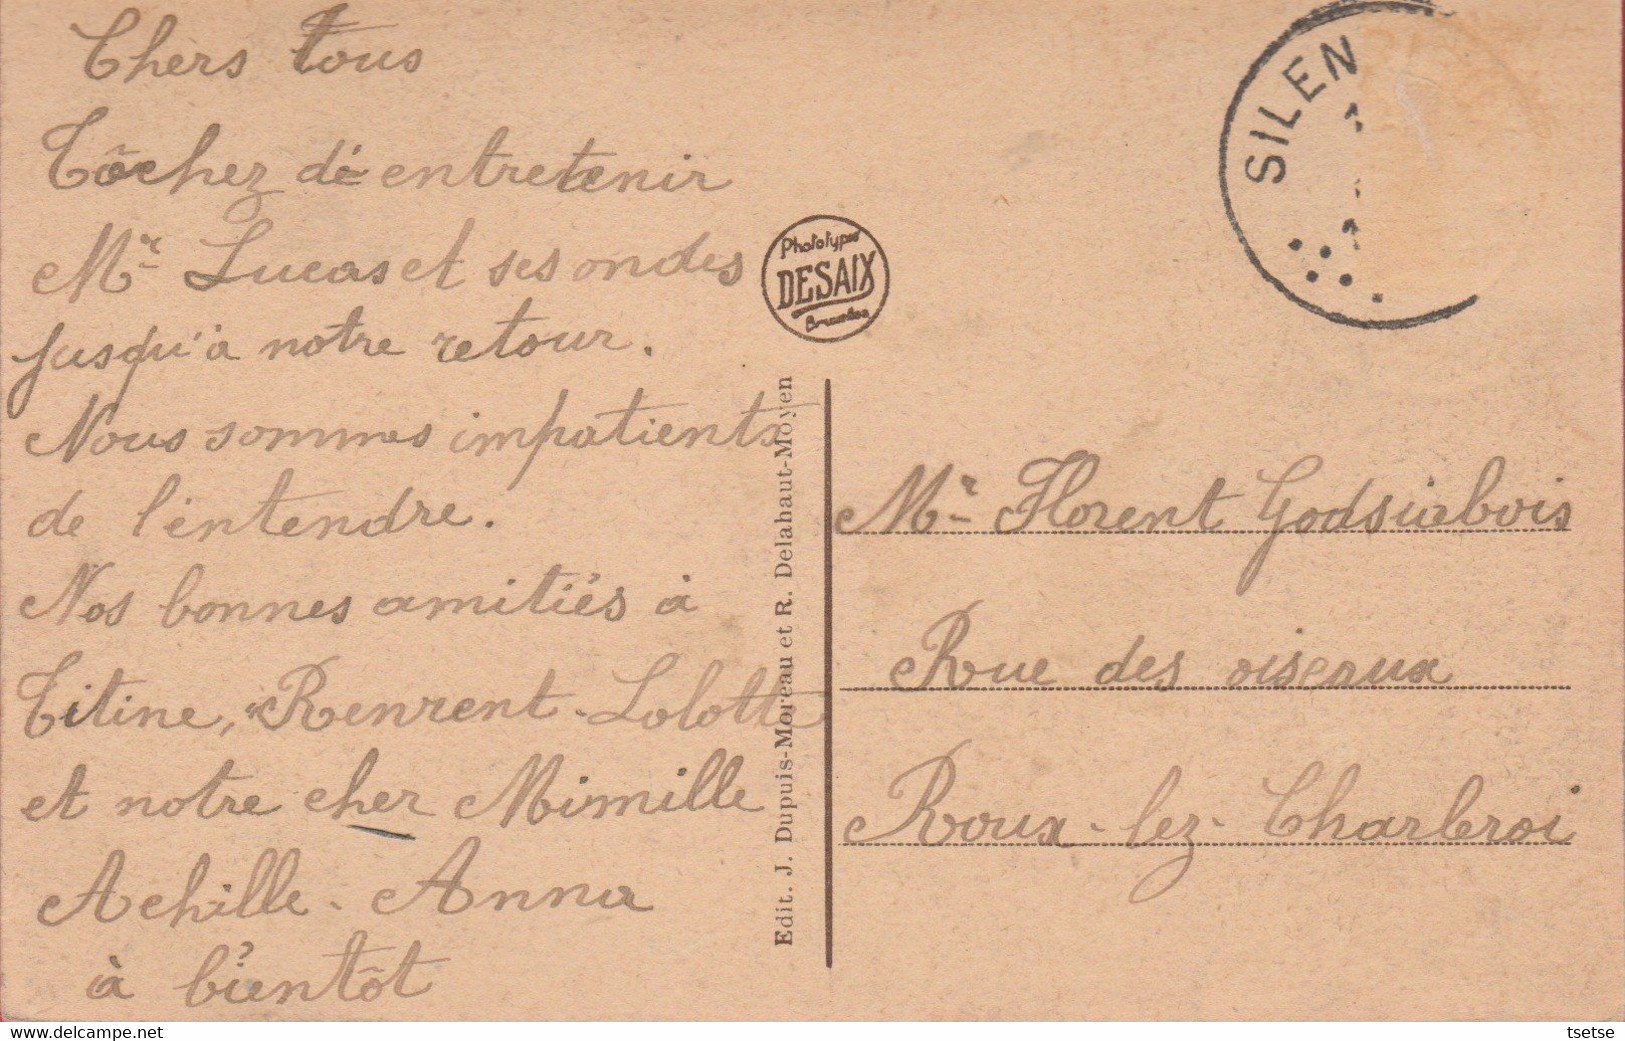 Chers tous
Tâchez de entretenir
Mr Lucas et ses ondes
jusqu'à notre retour.
Nous sommes impatients
de l'entendre.
Nos bonnes amitiés à
Titine, Renrent - Lolotte
et notre cher Mimille
Achille - Anna
à bientôt
Phototypie
DESAIX
Bruxelles
Edit. J. Dupuis-Moreau et R. Delahaut-Moyen
SILEN
Mr Florent Godsiabois
Rue des oiseaux
Roux-lez-Charleroi
delcampe.net
tsetse